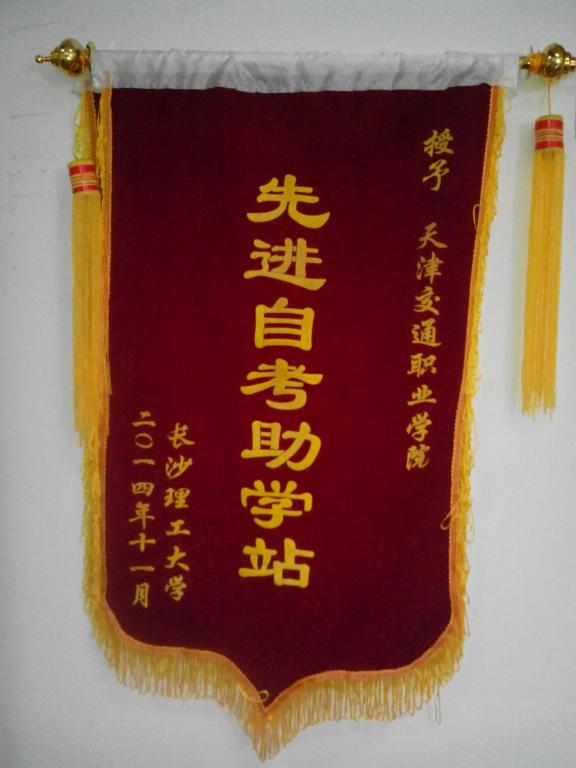 授予 天津交通职业学院
先进自考助学站
长沙理工大学
二〇一四年十一月